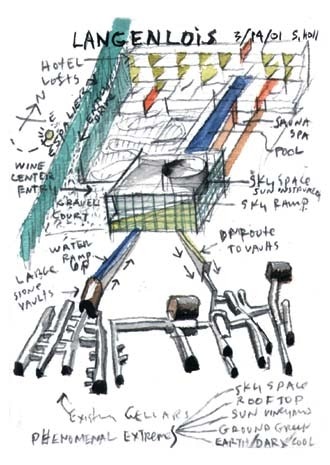 LANGENLOIS 3/14/01 S. Holl
HOTEL
LOFTS
ESPALIERED
SAUNA
SPA
POOL
WINE
CENTER
ENTRY
GRAVEL
COURT
SKY SPACE
SUN INSTRUMENT
SKY RAMP
WATER
RAMP
UP
DN ROUTE
TO VAULTS
LARGE
STONE
VAULTS
EXISTING CELLARS
PHENOMENAL EXTREMES
SKY SPACE
ROOFTOP
SUN VINEYARD
GROUND GREEN
EARTH/DARK COOL